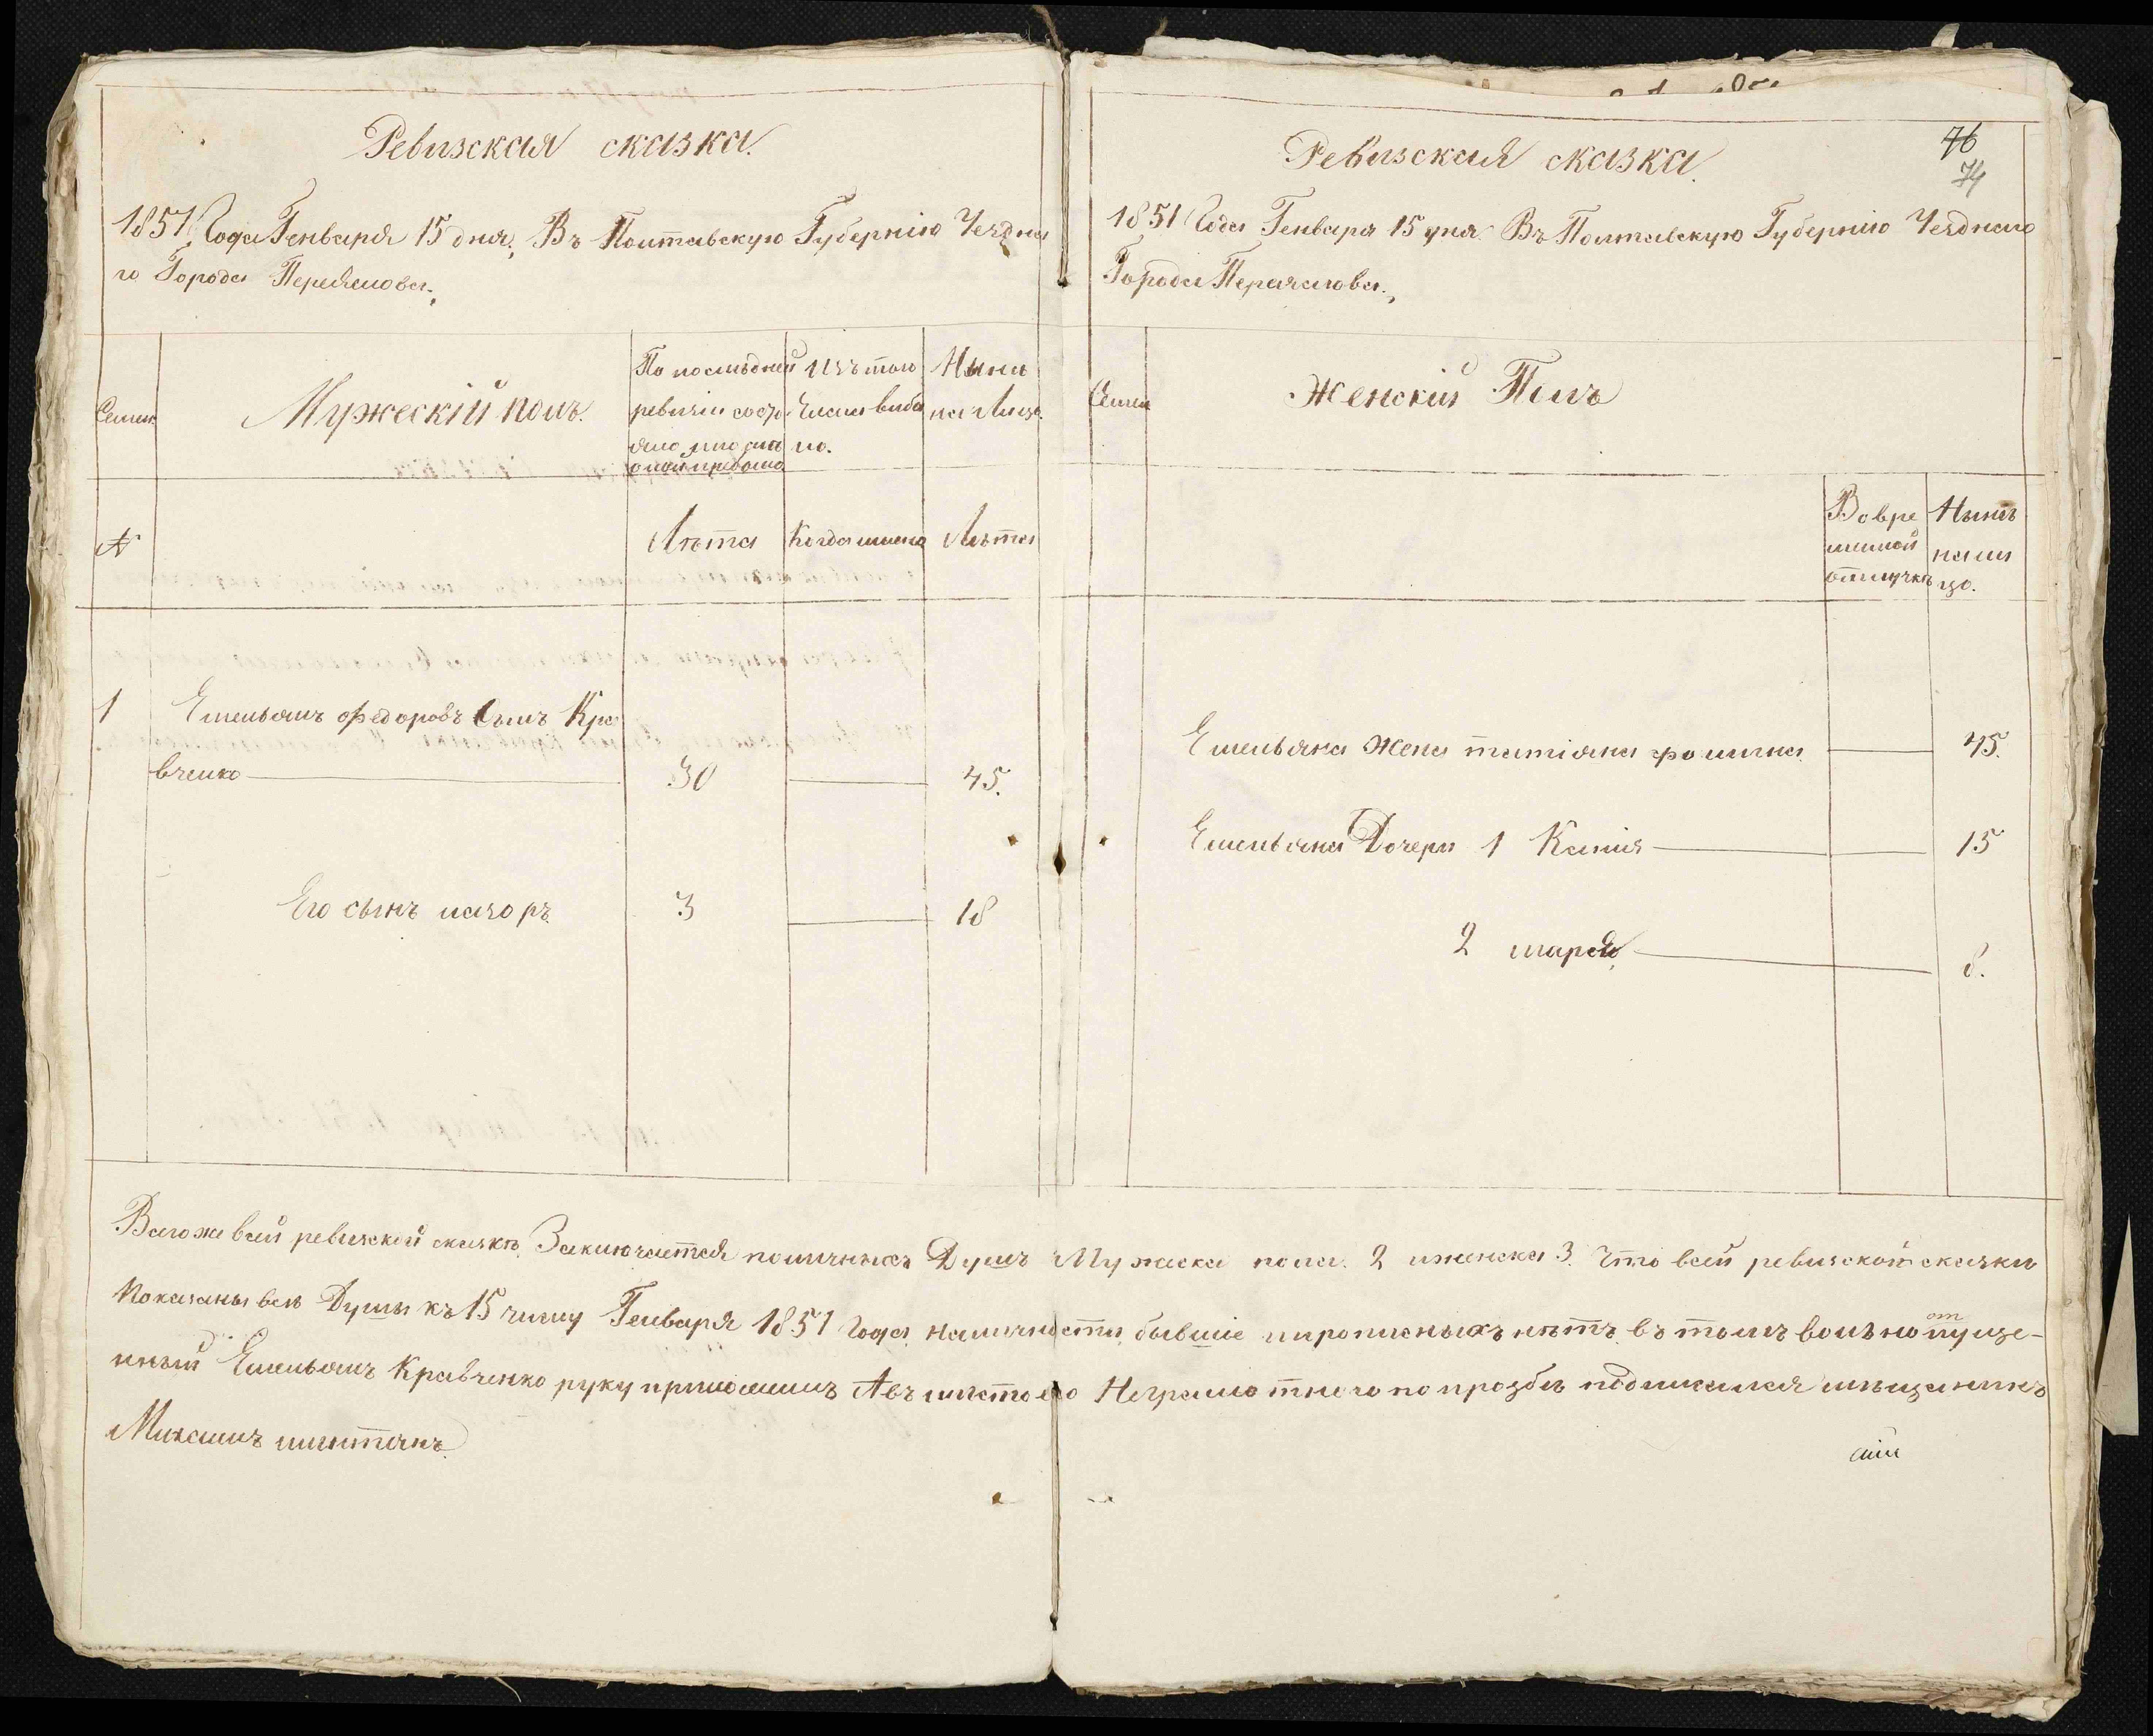 Ревизская сказка.
1851 Года Генваря 15 дня, Въ Полтавскую Губернію Уездна
го Города Переяслова.
Семьи
Мужескій полъ.
По последней
ревизіи состо
яло
Изъ того
Числа выбы
ло.
Ныне
на Лицо.
№
Лета
Когда имено
Лета
1 Емельянъ Федоровъ Сынъ Кра
вченко 30 45.
Его сынъ назоръ 3 18
76
74
Ревизская сказка.
1851 Года Генваря 15 дня Въ Полтавскую Губернію Уезднаго
Города Переяслова.
Семьи
Женскій Полъ
Вовре
менной
отлучкѣ
Нынѣ
нали
цо.
Емельяна Жена татіяна фомина 45.
Емельяна Дочери 1 Ксенія 15
2 марья 8.
Всегоже всей ревизской сказкѣ Заключается наличныхъ Душъ Мужеска пола 2 иженска 3. Что всей ревизской сказки
Показаны всѣ Души къ 15 числу Генваря 1851 Года наличности бывшіе ипрописныхъ нѣтъ, въ томъ вольно отпуще-
нный Емельянъ Кравченко руку приложилъ Авъ мѣсто его Неграмотного по прозбѣ подписался мѣщанинъ
Михаилъ